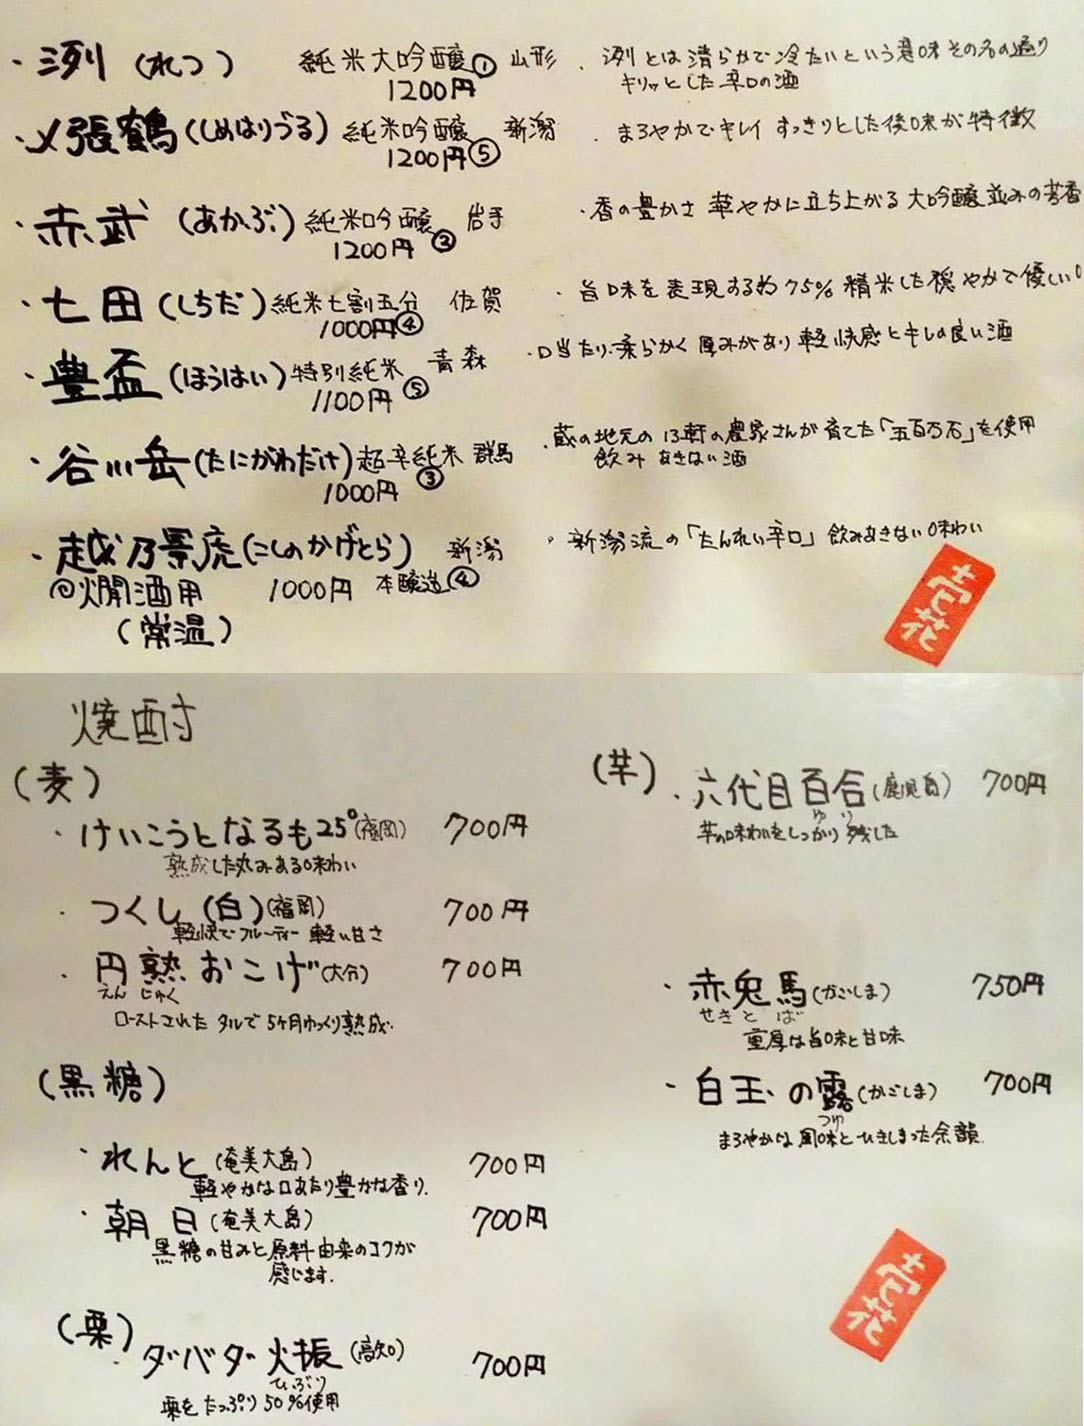 ・洌（れつ） 純米大吟醸① 山形 ・洌とは清らかで冷たいという意味その名の通り
1200円 キリッとした辛口の酒
・〆張鶴（しめはりづる） 純米吟醸 新潟 ・まろやかでキレイ すっきりとした後味が特徴
1200円⑤
・赤武（あかぶ）純米吟醸 岩手 ・香の豊かさ 華やかに立ち上がる 大吟醸並みの芳香
1200円③
・七田（しちだ）純米七割五分 佐賀 ・旨味を表現する為75%精米した穏やかで優しい
1000円④
・豊盃（ほうはい）特別純米 青森 ・口当たり柔らかく厚みがあり軽快感とキレの良い酒
1100円⑤
・谷川岳（たにがわだけ）超辛純米 群馬 ・蔵の地元の13軒の農家さんが育てた「五百万石」を使用
1000円③ 飲みあきない酒
・越乃景虎（こしのかげとら） 新潟 ・新潟流の「たんれい辛口」飲みあきない味わい
◎燗酒用 1000円 本醸造④
（常温）
焼酎
（麦）
・けいこうとなるも25°（福岡） 700円
熟成した丸みある味わい
・つくし（白）（福岡） 700円
軽快でフルーティー 軽い甘さ
・円熟おこげ（大分） 700円
えんじゅく
ローストされた タルで 5ヶ月ゆっくり熟成.
（黒糖）
・れんと（奄美大島） 700円
軽やかな口あたり豊かな香り.
・朝日（奄美大島） 700円
黒糖の甘みと原料由来のコクが
感じます.
（栗）
・ダバダ火振（高知） 700円
ひぶり
栗をたっぷり50%使用
（芋）
・六代目百合（鹿児島） 700円
ゆり
芋の味わいをしっかり残した
・赤兎馬（かごしま） 750円
せきとば
重厚な旨味と甘味
・白玉の露（かごしま） 700円
つゆ
まろやかな風味とひきしまった余韻.